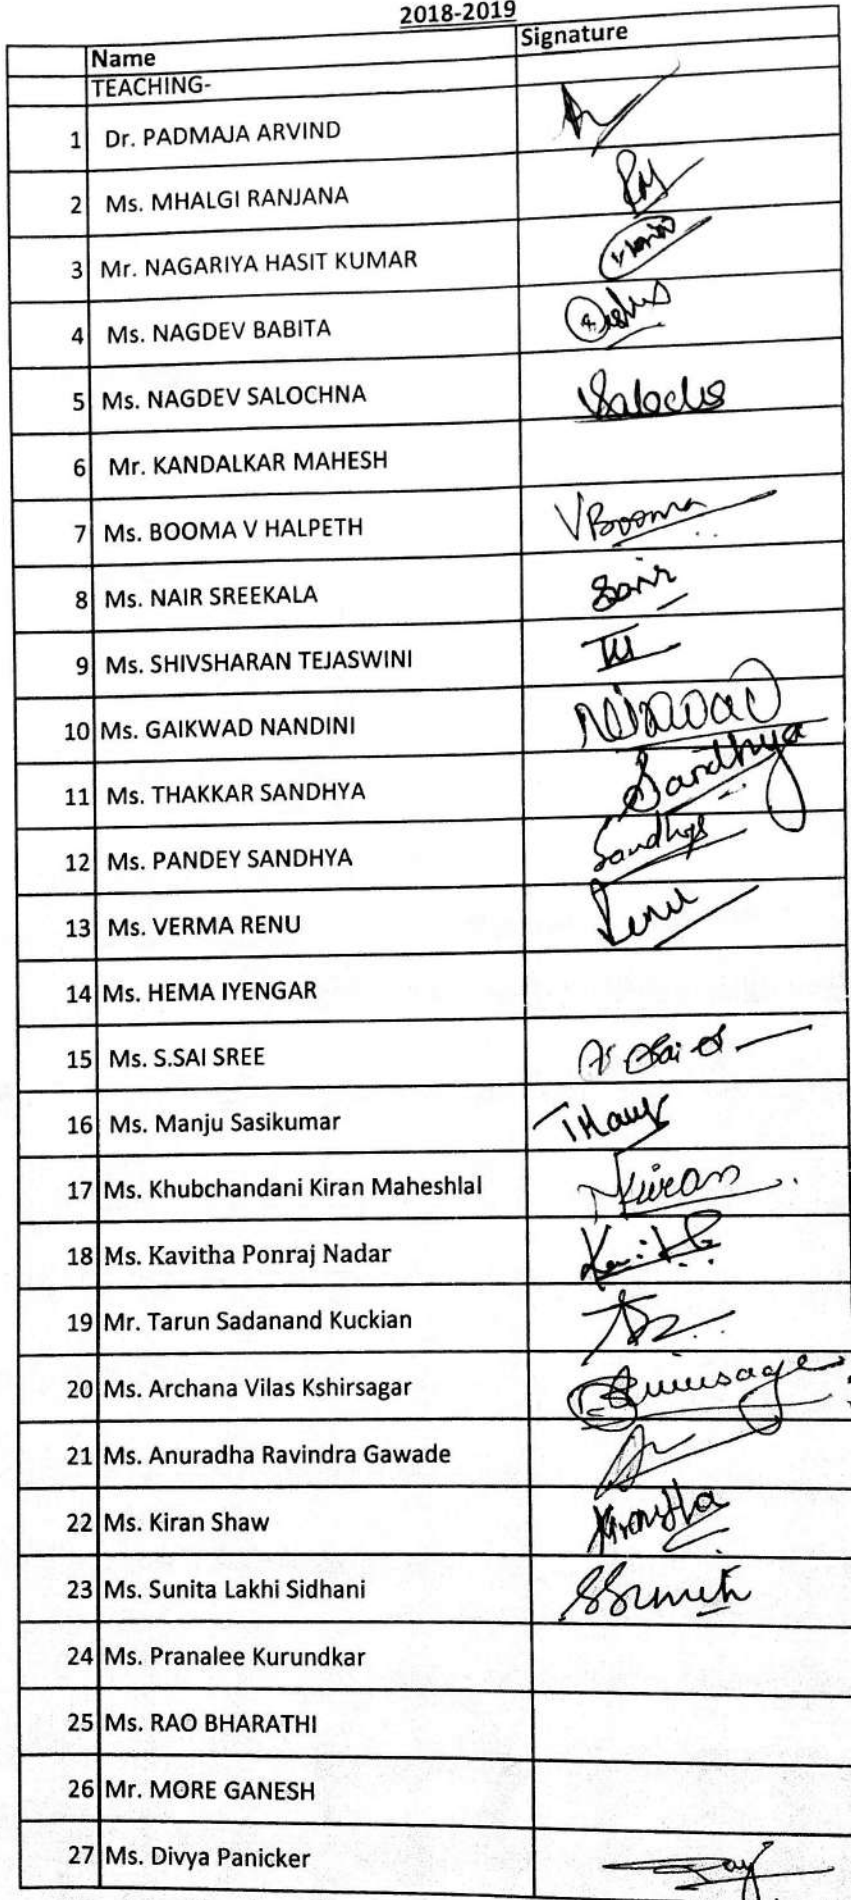 2018-2019
Name Signature
TEACHING-
1 Dr. PADMAJA ARVIND
2 Ms. MHALGI RANJANA
3 Mr. NAGARIYA HASIT KUMAR
4 Ms. NAGDEV BABITA
5 Ms. NAGDEV SALOCHNA
6 Mr. KANDALKAR MAHESH
7 Ms. BOOMA V HALPETH VBooma
8 Ms. NAIR SREEKALA
9 Ms. SHIVSHARAN TEJASWINI
10 Ms. GAIKWAD NANDINI
11 Ms. THAKKAR SANDHYA Sandhya
12 Ms. PANDEY SANDHYA Sandhya
13 Ms. VERMA RENU Renu
14 Ms. HEMA IYENGAR
15 Ms. S.SAI SREE
16 Ms. Manju Sasikumar
17 Ms. Khubchandani Kiran Maheshlal Kiran
18 Ms. Kavitha Ponraj Nadar
19 Mr. Tarun Sadanand Kuckian
20 Ms. Archana Vilas Kshirsagar
21 Ms. Anuradha Ravindra Gawade
22 Ms. Kiran Shaw
23 Ms. Sunita Lakhi Sidhani
24 Ms. Pranalee Kurundkar
25 Ms. RAO BHARATHI
26 Mr. MORE GANESH
27 Ms. Divya Panicker